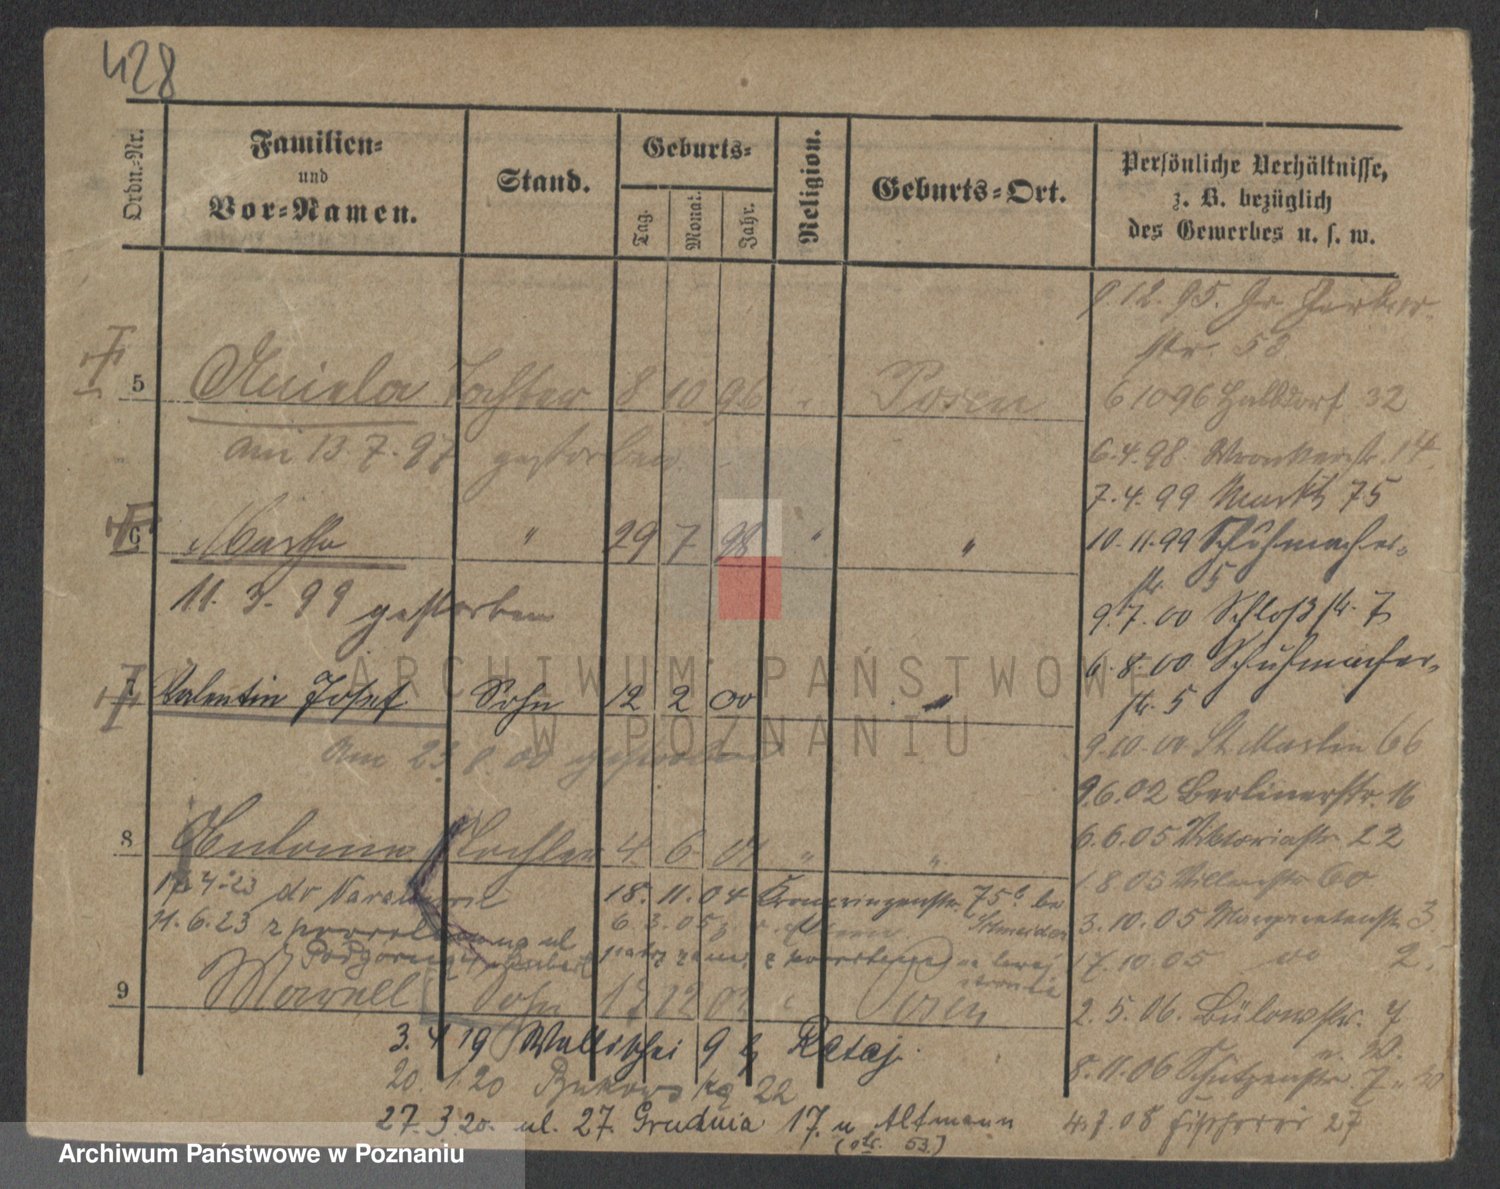 428
Ordn.-Nr.
Familien-
und
Vor-Namen.
Stand.
Geburts-
Tag.
Monat.
Jahr.
Religion.
Geburts-Ort.
Persönliche Verhältnisse,
z. B. bezüglich
des Gewerbes u. s. w.
9.12.95. Gr Gerber-
str. 53
5 Aniela Tochter 8 10 96 " Posen
6 10 96 Halbdorf 32
am 13.7.97 gestorben
6.4.98 Wronkerstr. 14
7.4.99 Markt 75
6 Martha " 29 7 98 " "
10.11.99 Schuhmacher-
str. 5
11.3.99 gestorben
9.7.00 Schloßstr. 7
6.8.00 Schuhmacher-
str. 5
7 Valentin Josef Sohn 12 2 00 "
ARCHIWUM PAŃSTWOWE
W POZNANIU
am 23.8.00 gestorben
9.10.00 St Martin 66
9.6.02 Berlinerstr. 16
8 Antonie Tochter 4 6 01 " "
6.6.05 Viktoriastr 22
1.8.05 60
17.4.23 do
18.11.04 75
3.10.05 Margaretenstr. 3.
11.6.23 z ul
6.3.05
17.10.05 do 2.
9 Marcell Sohn 17 12 02 " Posen
2.5.06. Bülowstr. 7
3.4.19 Wallischei 9 b Rataj.
8.11.06 Schützenstr.
20.1.20 Bukowska 22
27.3.20. ul. 27. Grudnia 17. u Altmann
4.7.08 Fischerei 27
Archiwum Państwowe w Poznaniu